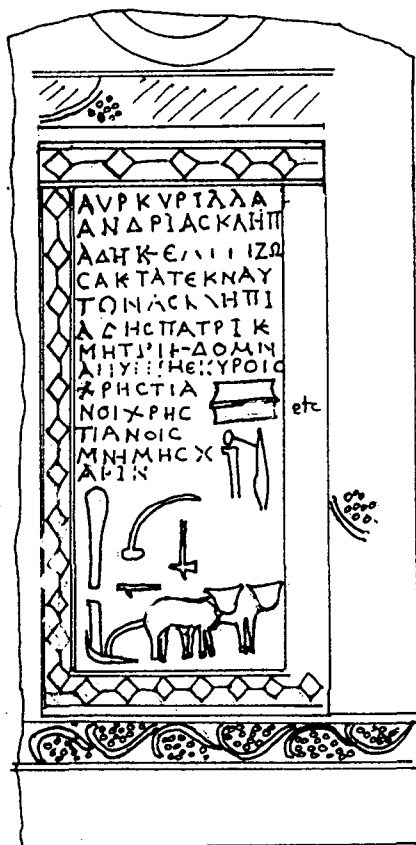 ΑΥΡΚΥΡΙΛΛΑ
ΑΝΔΡΙΑCΚΛΗΠ
ΑΔΗΚΕΛΠΙΖΩ
CΑΚΤΑΤΕΚΝΑΥ
ΤΩΝΑCΚΛΗΠΙ
ΑΔΗCΠΑΤΡΙΚ
ΧΡΗCΤΙΑ
ΝΟΙΧΡΗC
ΤΙΑΝΟΙC
ΜΝΗΜΗCΧ
ΑΡΙΝ
etc